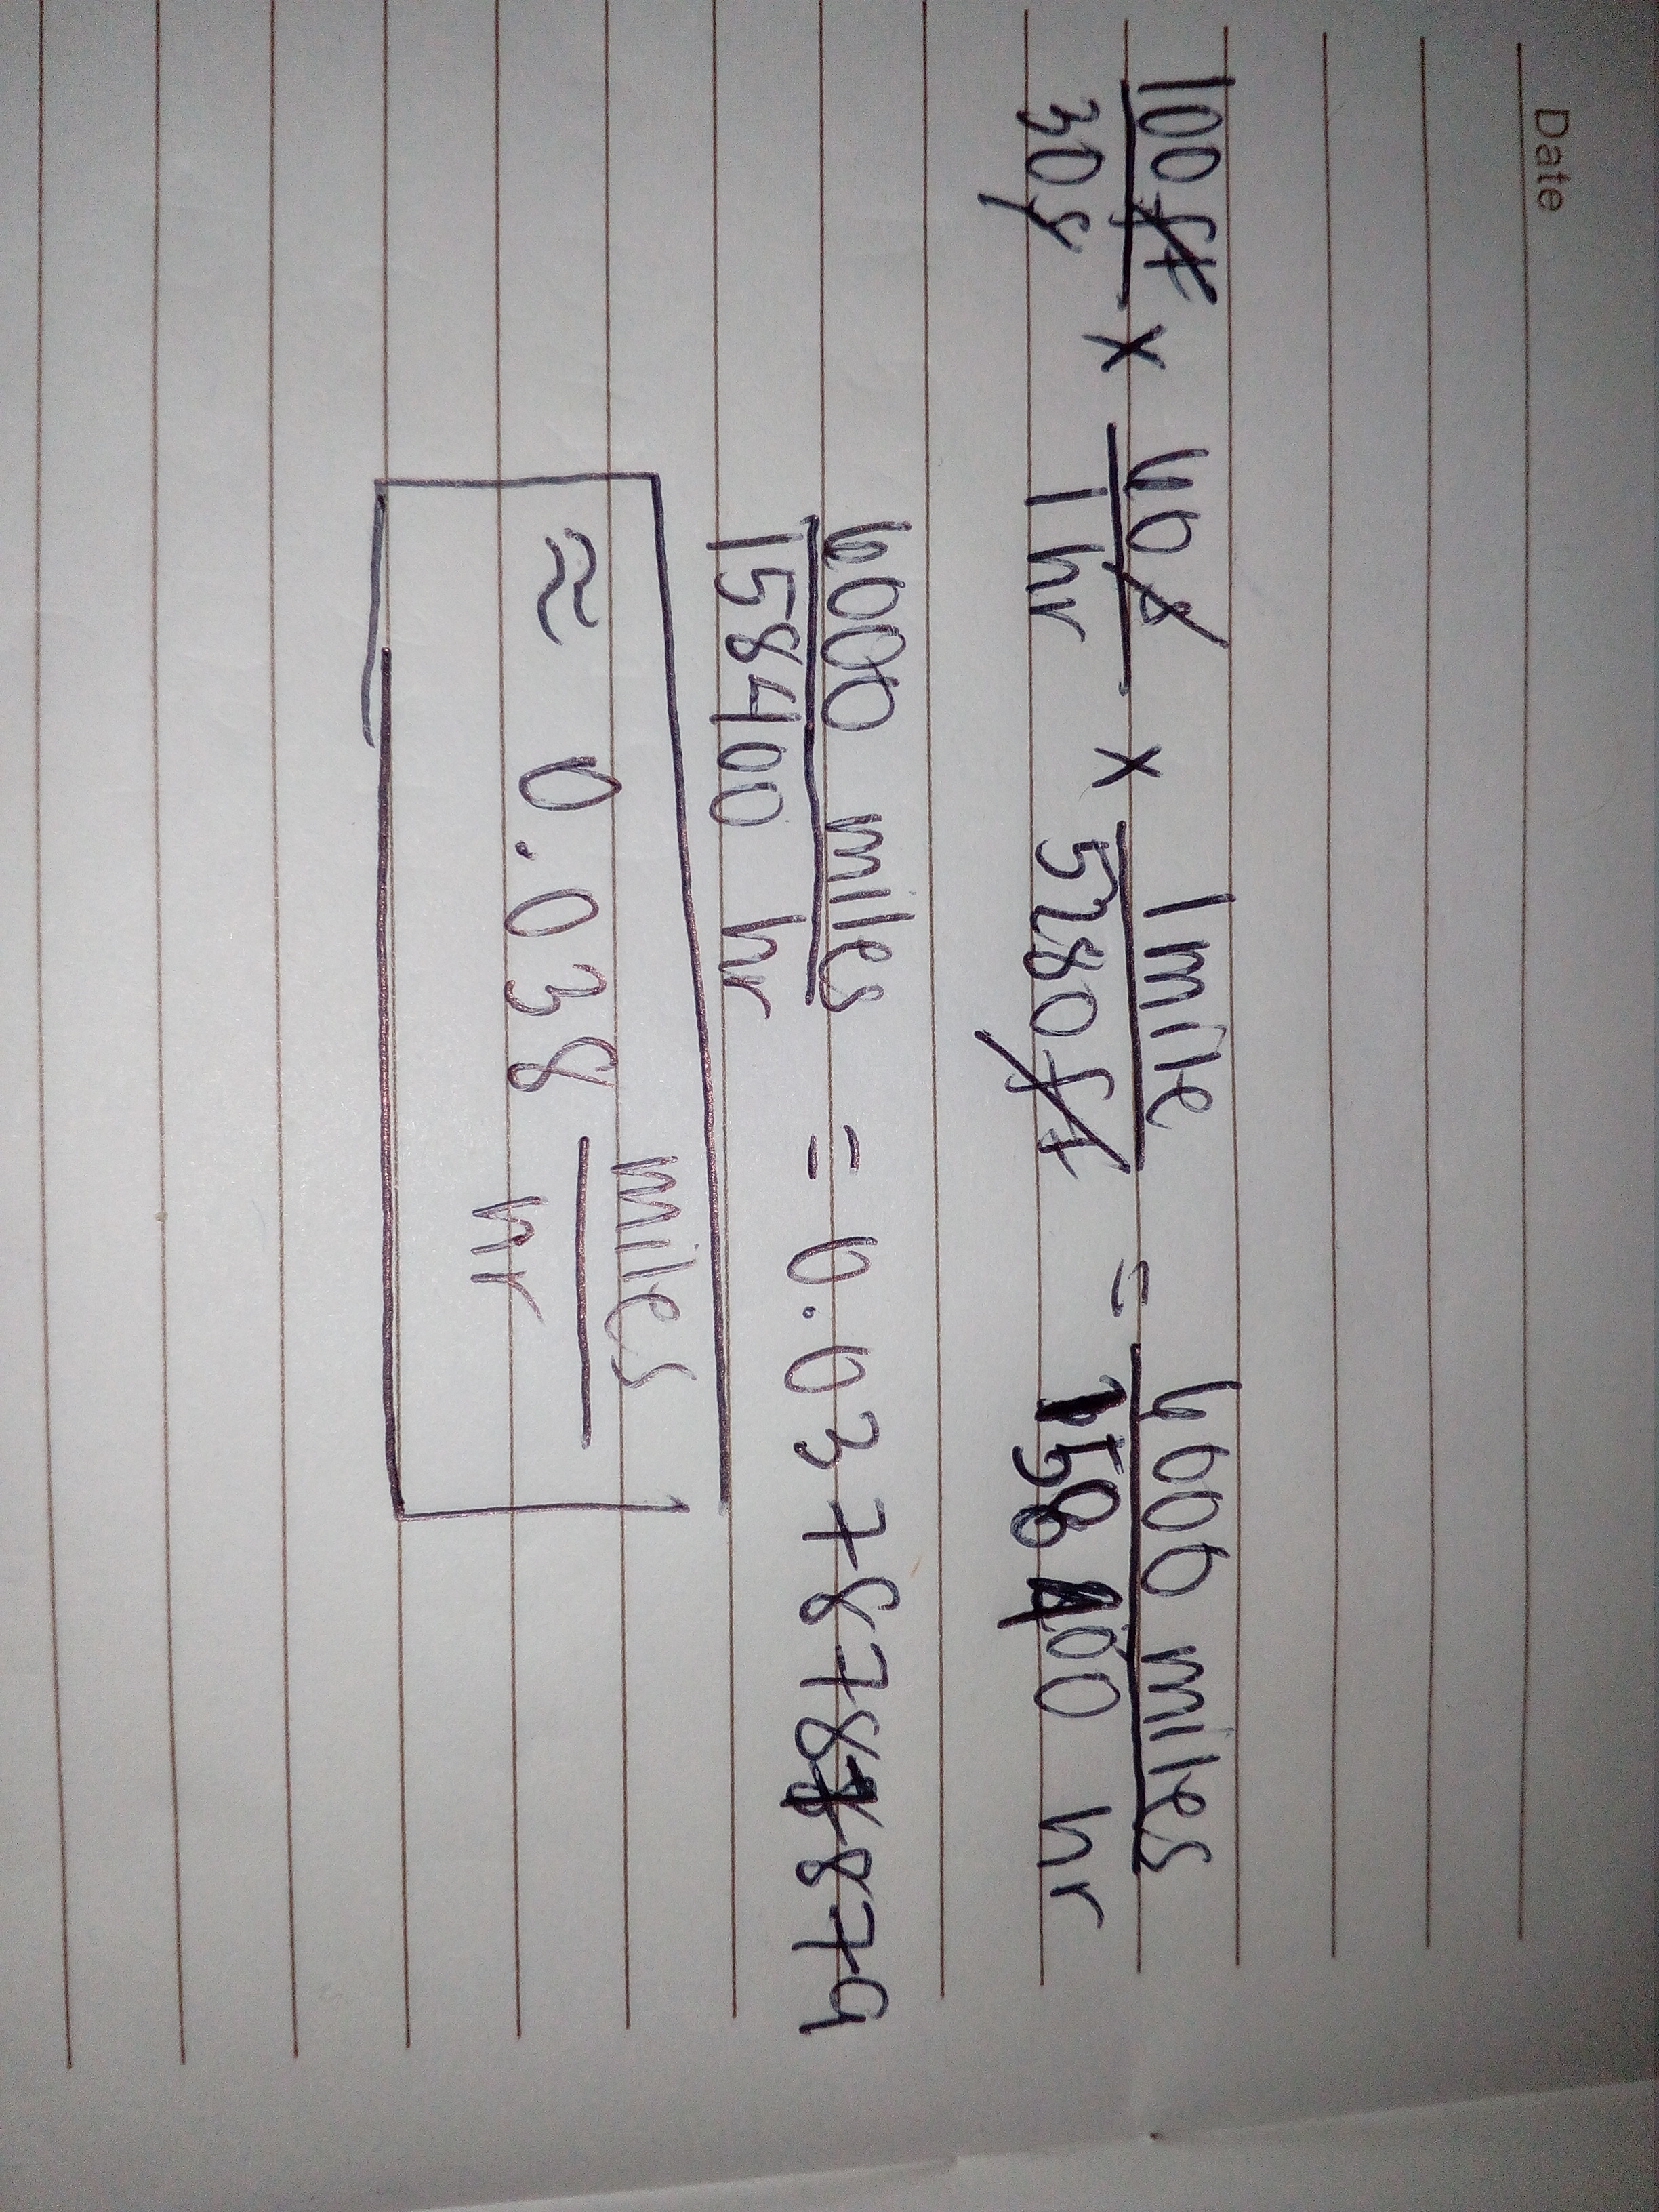 Date
100 ft / 30 s × 60 s / 1 hr × 1 mile / 5280 ft = 6000 miles / 158400 hr
6000 miles / 158400 hr = 0.0378787879
≈ 0.038 miles / hr